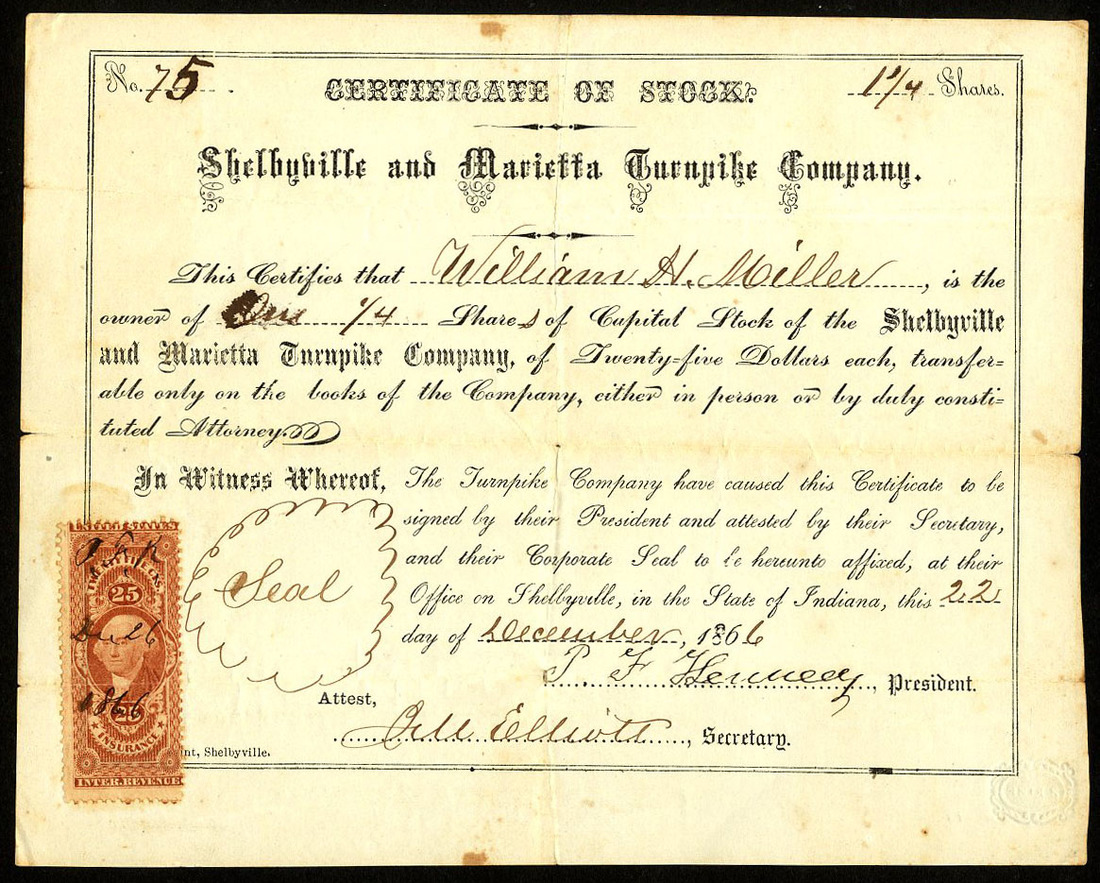 No. 75
CERTIFICATE OF STOCK.
1 1/4 Shares.
Shelbyville and Marietta Turnpike Company.
This Certifies that William H. Miller, is the
owner of One 1/4 Shares of Capital Stock of the Shelbyville
and Marietta Turnpike Company, of Twenty-five Dollars each, transfer-
able only on the books of the Company, either in person or by duly consti-
tuted Attorney.
In Witness Whereof, The Turnpike Company have caused this Certificate to be
signed by their President and attested by their Secretary,
and their Corporate Seal to be hereunto affixed, at their
Office on Shelbyville, in the State of Indiana, this 22
day of December, 1866
Seal
P. F. Kennedy, President.
Attest,
Elliott, Secretary.
nt, Shelbyville.
25
Dec 26
1866
25
INSURANCE
INTER. REVENUE